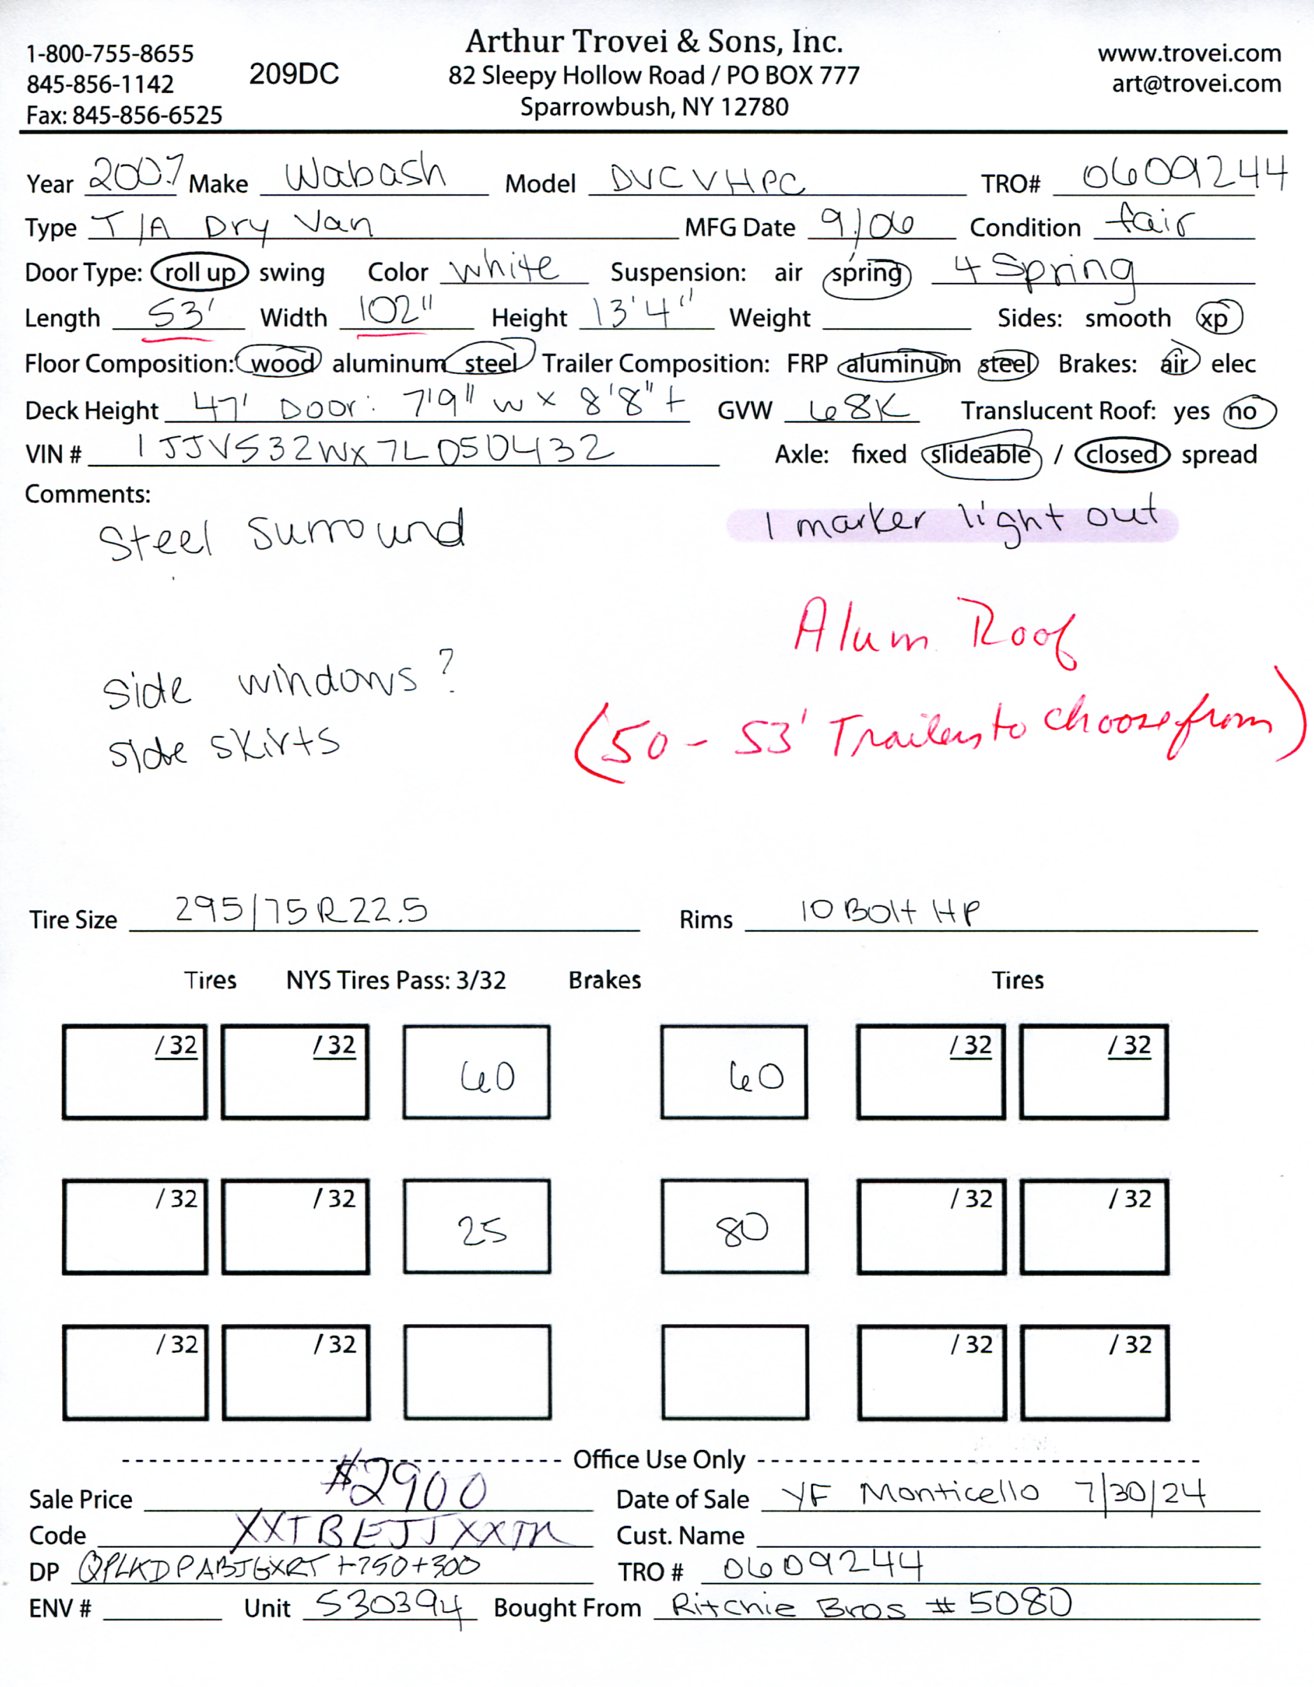 1-800-755-8655
845-856-1142
Fax: 845-856-6525
209DC
Arthur Trovei & Sons, Inc.
82 Sleepy Hollow Road / PO BOX 777
Sparrowbush, NY 12780
www.trovei.com
art@trovei.com
Year 2007 Make Wabash Model DVCVHPC TRO# 0609244
Type T/A Dry Van MFG Date 9/06 Condition fair
Door Type: roll up swing Color white Suspension: air spring 4 Spring
Length 53' Width 102" Height 13'4" Weight Sides: smooth xp
Floor Composition: wood aluminum steel Trailer Composition: FRP aluminum steel Brakes: air elec
Deck Height 47' Door: 7'9" w x 8'8" t GVW 68K Translucent Roof: yes no
VIN # 1JJV532WX7L050432 Axle: fixed slideable / closed spread
Comments:
Steel Surround
1 marker light out
Alum Roof
side windows?
(50 - 53' Trailers to choose from)
side skirts
Tire Size 295/75R22.5 Rims 10 Bolt HP
Tires NYS Tires Pass: 3/32 Brakes Tires
/32 /32 60 60 /32 /32
/32 /32 25 80 /32 /32
/32 /32 /32 /32
Office Use Only
Sale Price $2900 Date of Sale YF Monticello 7/30/24
Code Cust. Name
DP +750+300 TRO # 0609244
ENV # Unit 530394 Bought From Ritchie Bros #5080